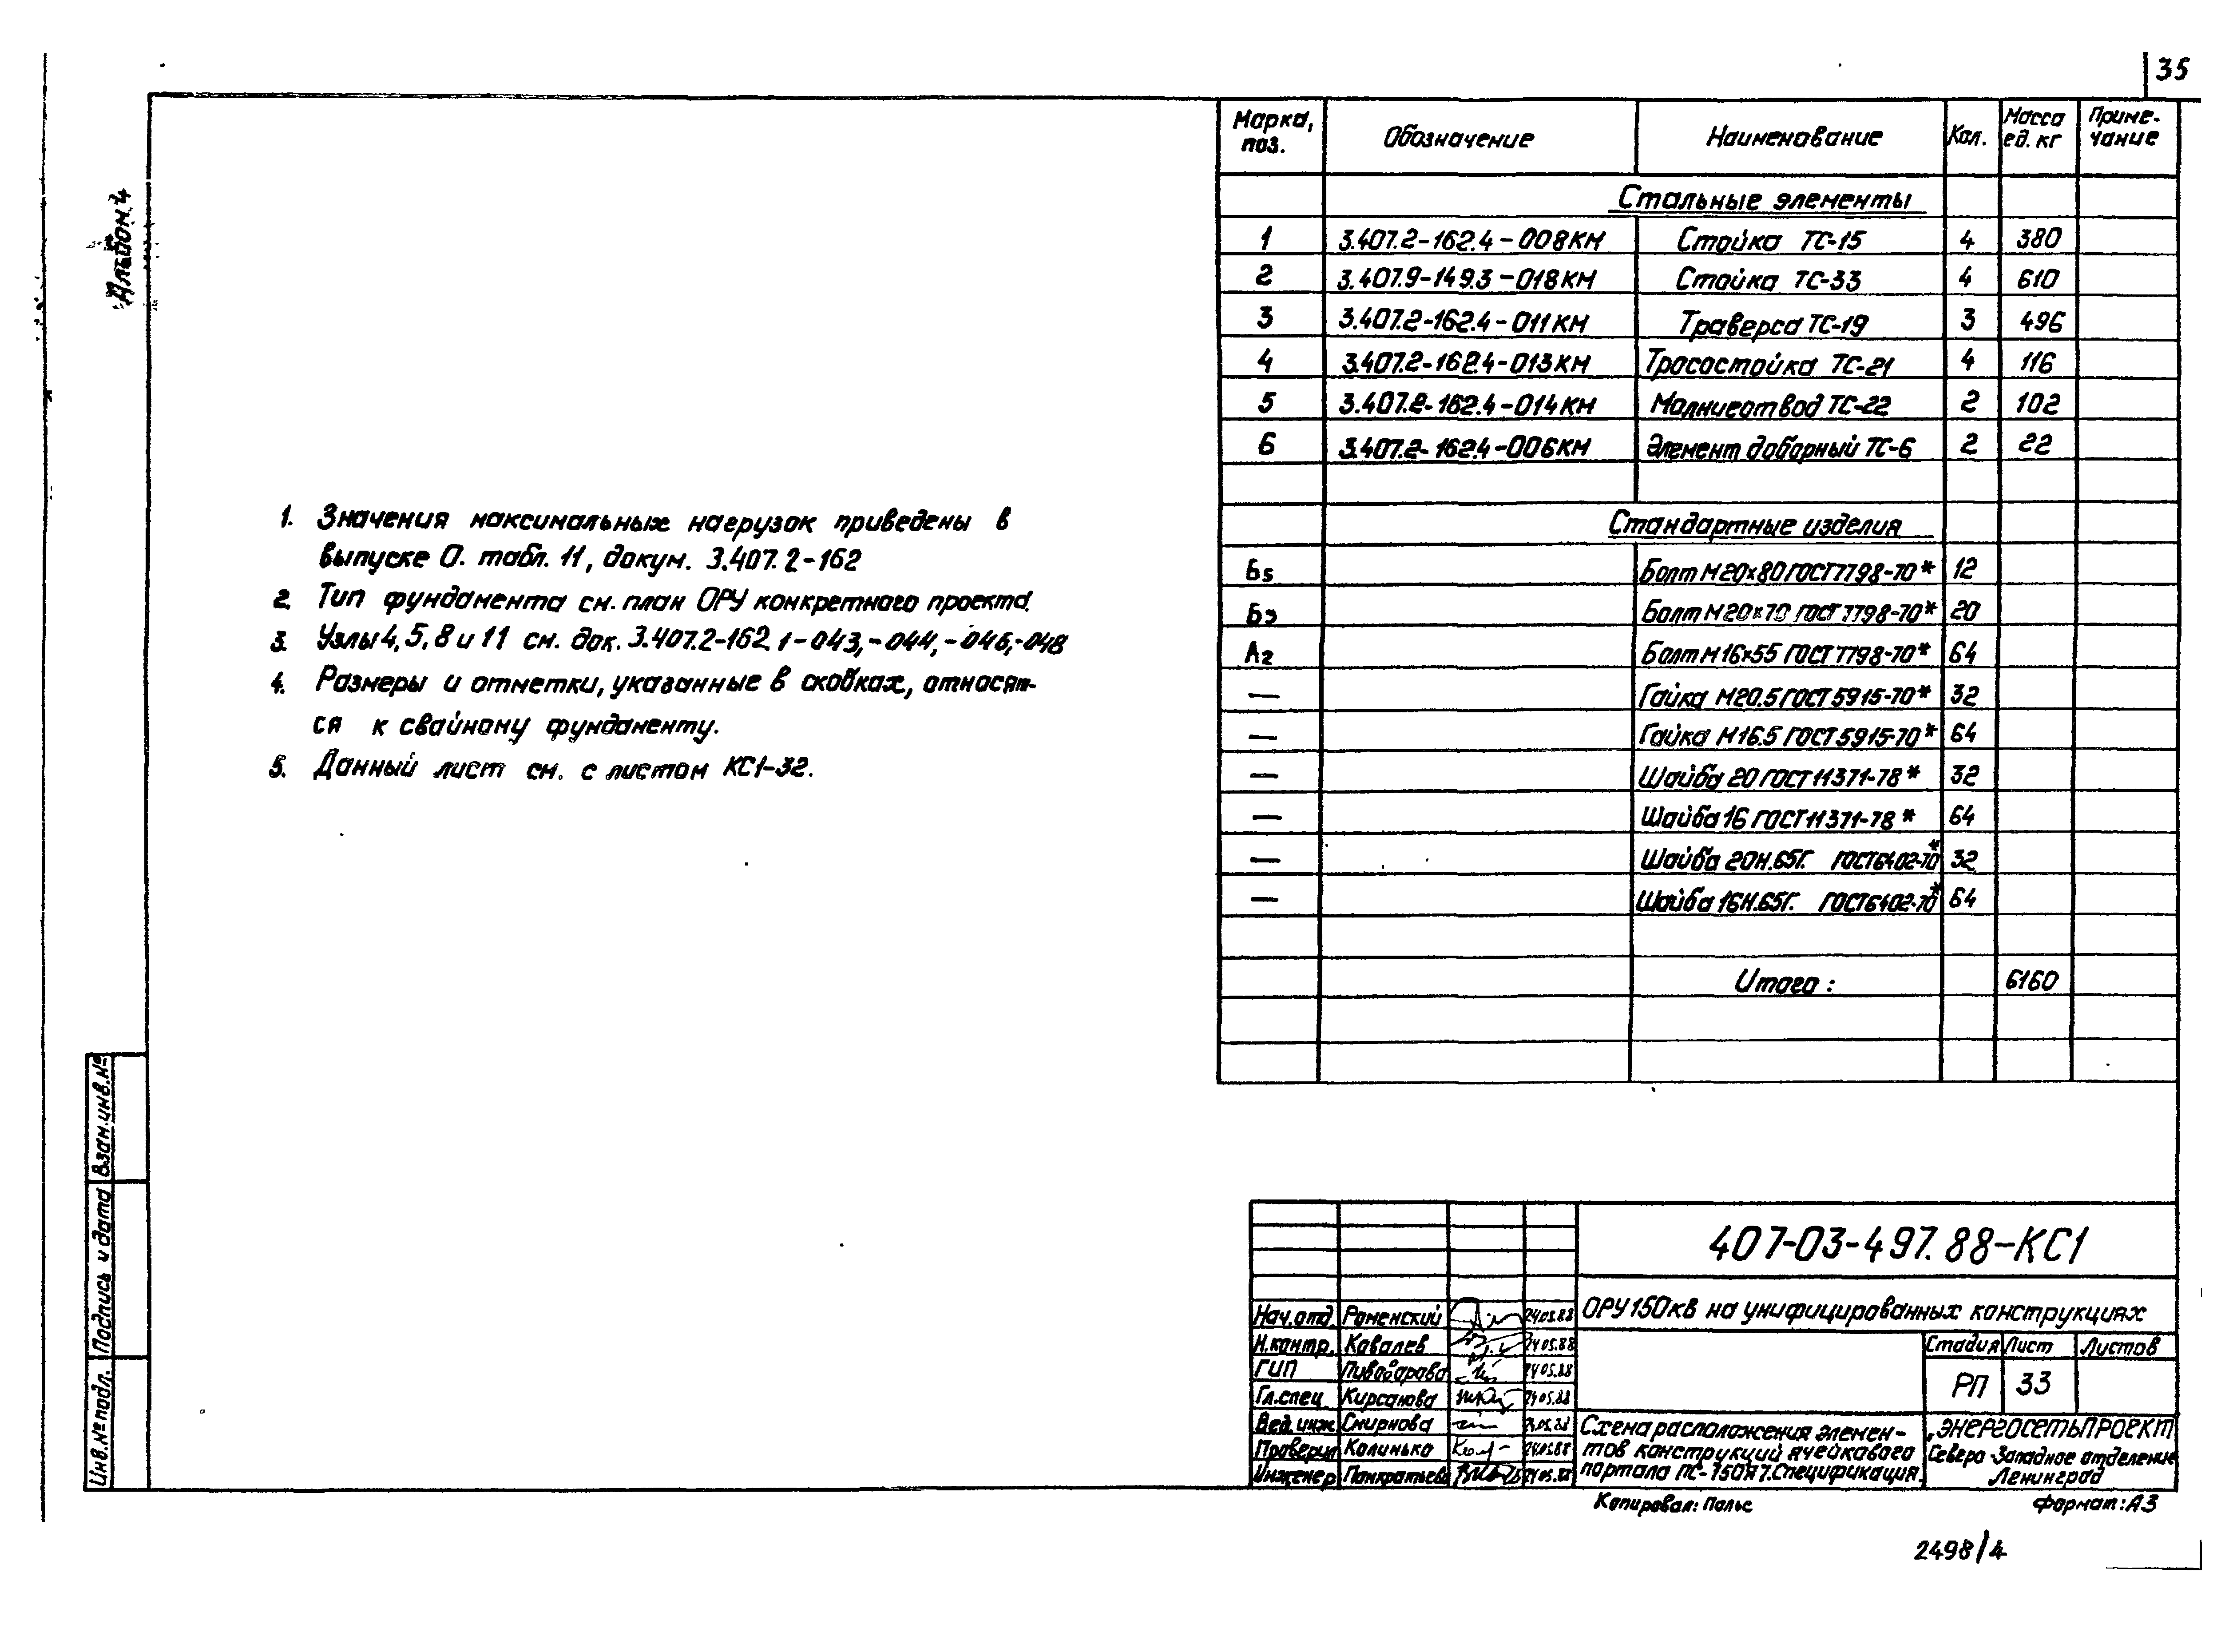 35
Альбом 4
Марка, поз. Обозначение Наименование Кол. Масса ед. кг Приме-чание
Стальные элементы
1 3.407.2-162.4-008КМ Стойка ТС-15 4 380
2 3.407.9-149.3-018КМ Стойка ТС-33 4 610
3 3.407.2-162.4-011КМ Траверса ТС-19 3 496
4 3.407.2-162.4-013КМ Тросостойка ТС-21 4 116
5 3.407.2-162.4-014КМ Молниеотвод ТС-22 2 102
6 3.407.2-162.4-006КМ Элемент доборный ТС-6 2 22
Стандартные изделия
Б5 Болт М20х80 ГОСТ 7798-70* 12
Б3 Болт М20х70 ГОСТ 7798-70* 20
А2 Болт М16х55 ГОСТ 7798-70* 64
— Гайка М20.5 ГОСТ 5915-70* 32
— Гайка М16.5 ГОСТ 5915-70* 64
— Шайба 20 ГОСТ 11371-78* 32
— Шайба 16 ГОСТ 11371-78* 64
— Шайба 20Н.65Г. ГОСТ 6402-70* 32
— Шайба 16Н.65Г. ГОСТ 6402-70* 64
Итого: 6160
1. Значения максимальных нагрузок приведены в
выпуске 0. табл. 11, докум. 3.407.2-162
2. Тип фундамента см. план ОРУ конкретного проекта.
3. Узлы 4, 5, 8 и 11 см. док. 3.407.2-162.1-043,-044,-046,-048
4. Размеры и отметки, указанные в скобках, относят-
ся к свайному фундаменту.
5. Данный лист см. с листом КС1-32.
Взам.инв.№
Подпись и дата
Инв.№ подл.
407-03-497.88-КС1
ОРУ 150кВ на унифицированных конструкциях
Нач.отд. Роменский 24.05.88
Н.контр. Ковалев 24.05.88
ГИП Пивоварова 24.05.88
Гл.спец. Кирсанова 24.05.88
Вед.инж. Смирнова
Проверил Калинько 24.05.88
Инженер Панкратьева 24.05.88
Стадия Лист Листов
РП 33
Схема расположения элемен-
тов конструкций ячейкового
портала ПС-150Я7. Спецификация.
„ЭНЕРГОСЕТЬПРОЕКТ
Северо-Западное отделение
Ленинград
Копировал: Полье
Формат: А3
2498/4